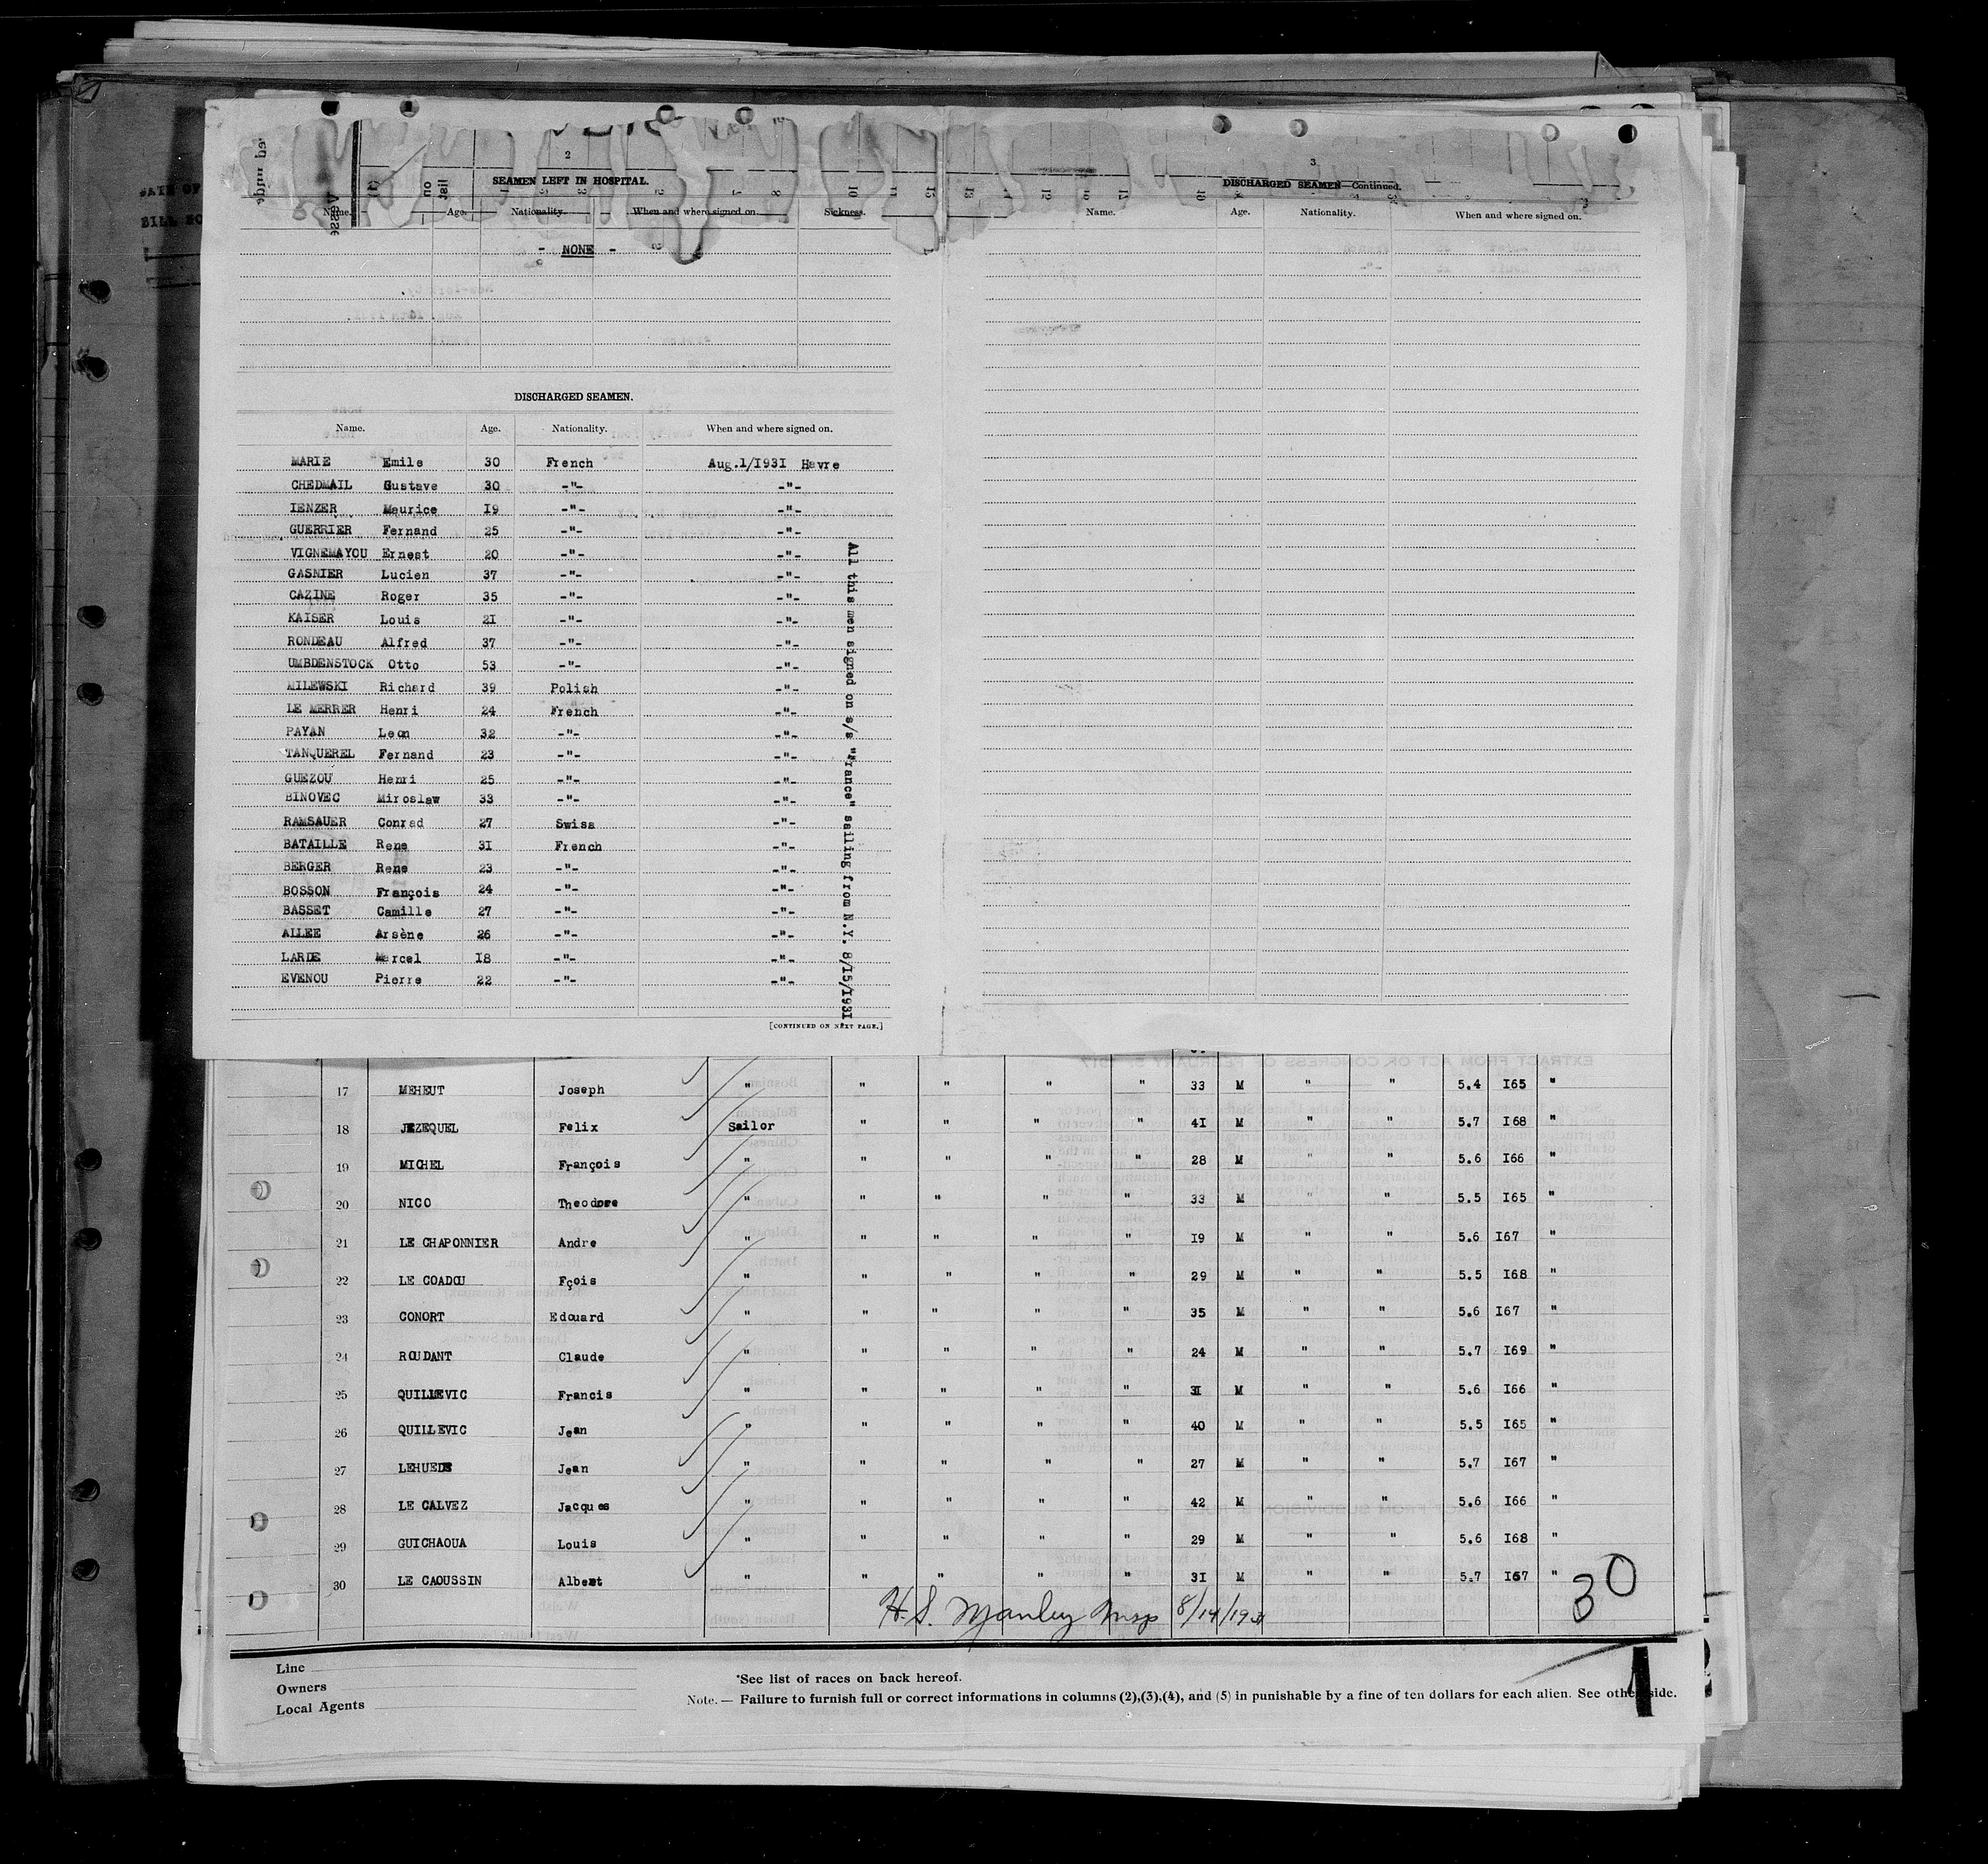 2
SEAMEN LEFT IN HOSPITAL.
Name. Age. Nationality. When and where signed on. Sickness.
- NONE -
DISCHARGED SEAMEN.
Name. Age. Nationality. When and where signed on.
MARIE Emile 30 French Aug.1/1931 Havre
CHEDMAIL Gustave 30 -"- -"-
IENZER Maurice 19 -"- -"-
GUERRIER Fernand 25 -"- -"-
VIGNEMAYOU Ernest 20 -"- -"-
GASNIER Lucien 37 -"- -"-
CAZINE Roger 35 -"- -"-
KAISER Louis 21 -"- -"-
RONDEAU Alfred 37 -"- -"-
UMBDENSTOCK Otto 53 -"- -"-
MILEWSKI Richard 39 Polish -"-
LE MERRER Henri 24 French -"-
PAYAN Leon 32 -"- -"-
TANQUEREL Fernand 23 -"- -"-
GUEZOU Henri 25 -"- -"-
BINOVEC Miroslaw 33 -"- -"-
RAMSAUER Conrad 27 Swiss -"-
BATAILLE Rene 31 French -"-
BERGER Rene 23 -"- -"-
BOSSON François 24 -"- -"-
BASSET Camille 27 -"- -"-
AILEE Arsène 26 -"- -"-
LARDE Marcel 18 -"- -"-
EVENOU Pierre 22 -"- -"-
All this men signed on s/s "France" sailing from N.Y. 8/15/1931
[CONTINUED ON NEXT PAGE.]
3
DISCHARGED SEAMEN—Continued.
Name. Age. Nationality. When and where signed on.
17 MEHEUT Joseph " " " " " 33 M " " 5.4 165 "
18 JEZEQUEL Felix Sailor " " " " 41 M " " 5.7 168 "
19 MICHEL François " " " " " 28 M " " 5.6 166 "
20 NICO Theodore " " " " " 33 M " " 5.5 165 "
21 LE CHAPONNIER Andre " " " " " 19 M " " 5.6 167 "
22 LE COADOU Fçois " " " " " 29 M " " 5.5 168 "
23 CONORT Edouard " " " " " 35 M " " 5.6 167 "
24 ROUDANT Claude " " " " " 24 M " " 5.7 169 "
25 QUILLEVIC Francis " " " " " 31 M " " 5.6 166 "
26 QUILLEVIC Jean " " " " " 40 M " " 5.5 165 "
27 LEHUEDE Jean " " " " " 27 M " " 5.7 167 "
28 LE CALVEZ Jacques " " " " " 42 M " " 5.6 166 "
29 GUICHAOUA Louis " " " " " 29 M " " 5.6 168 "
30 LE CAOUSSIN Albert " " " " " 31 M " " 5.7 167 "
30
H.S. Manley Insp 8/14/1931
Line
Owners
Local Agents
*See list of races on back hereof.
Note. — Failure to furnish full or correct informations in columns (2),(3),(4), and (5) in punishable by a fine of ten dollars for each alien. See other side.
1